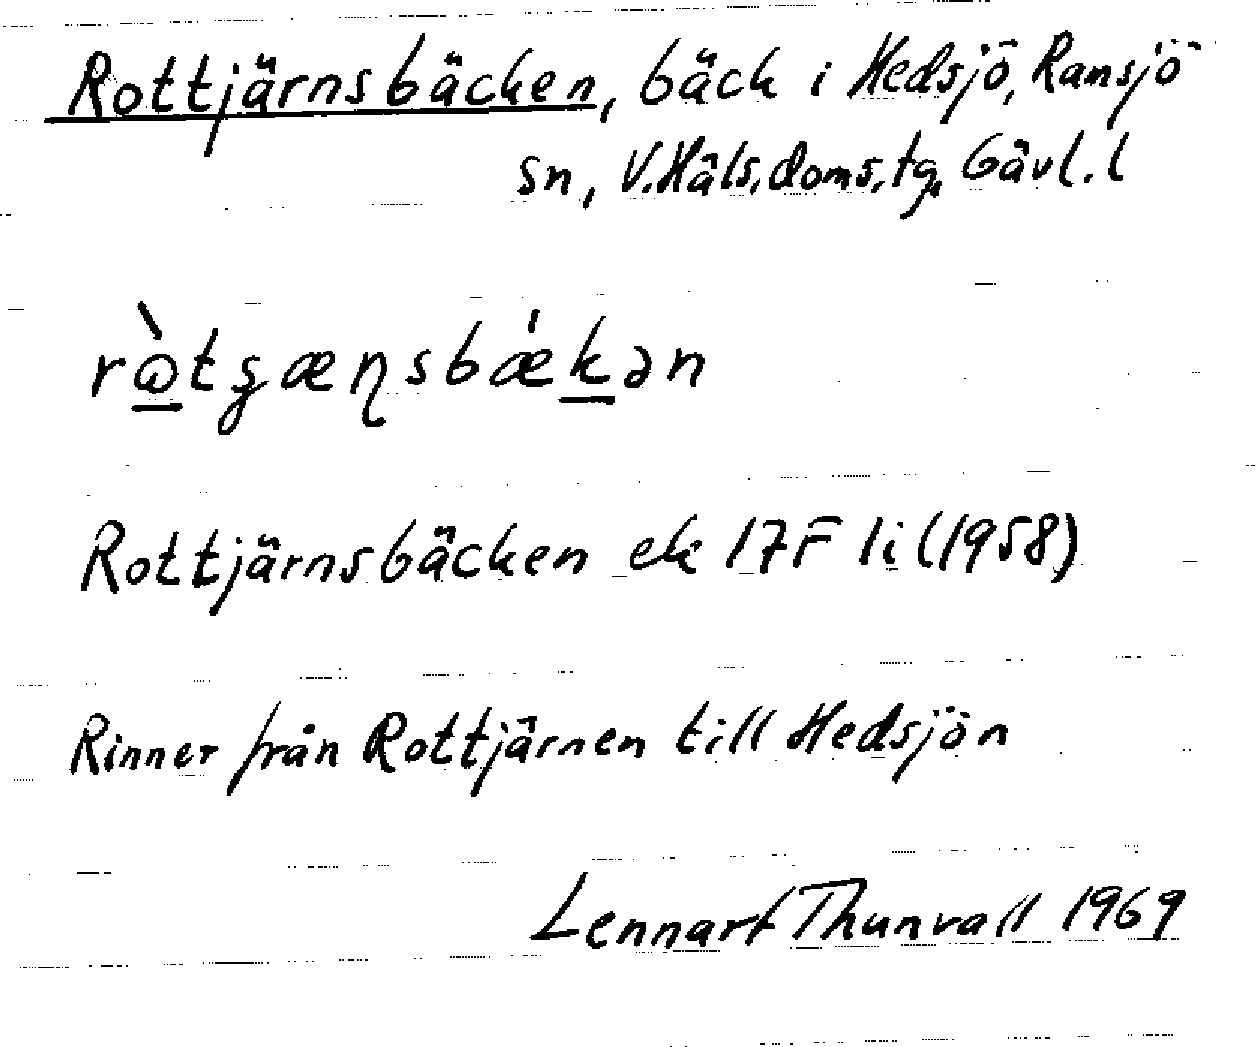 Rottjärnsbäcken, bäck i Hedsjö, Ramsjö
sn, V. Häls. doms. tg, Gävl. l
Rottjärnsbäcken ek 17F 1i (1958)
Rinner från Rottjärnen till Hedsjön
Lennart Thunvall 1969